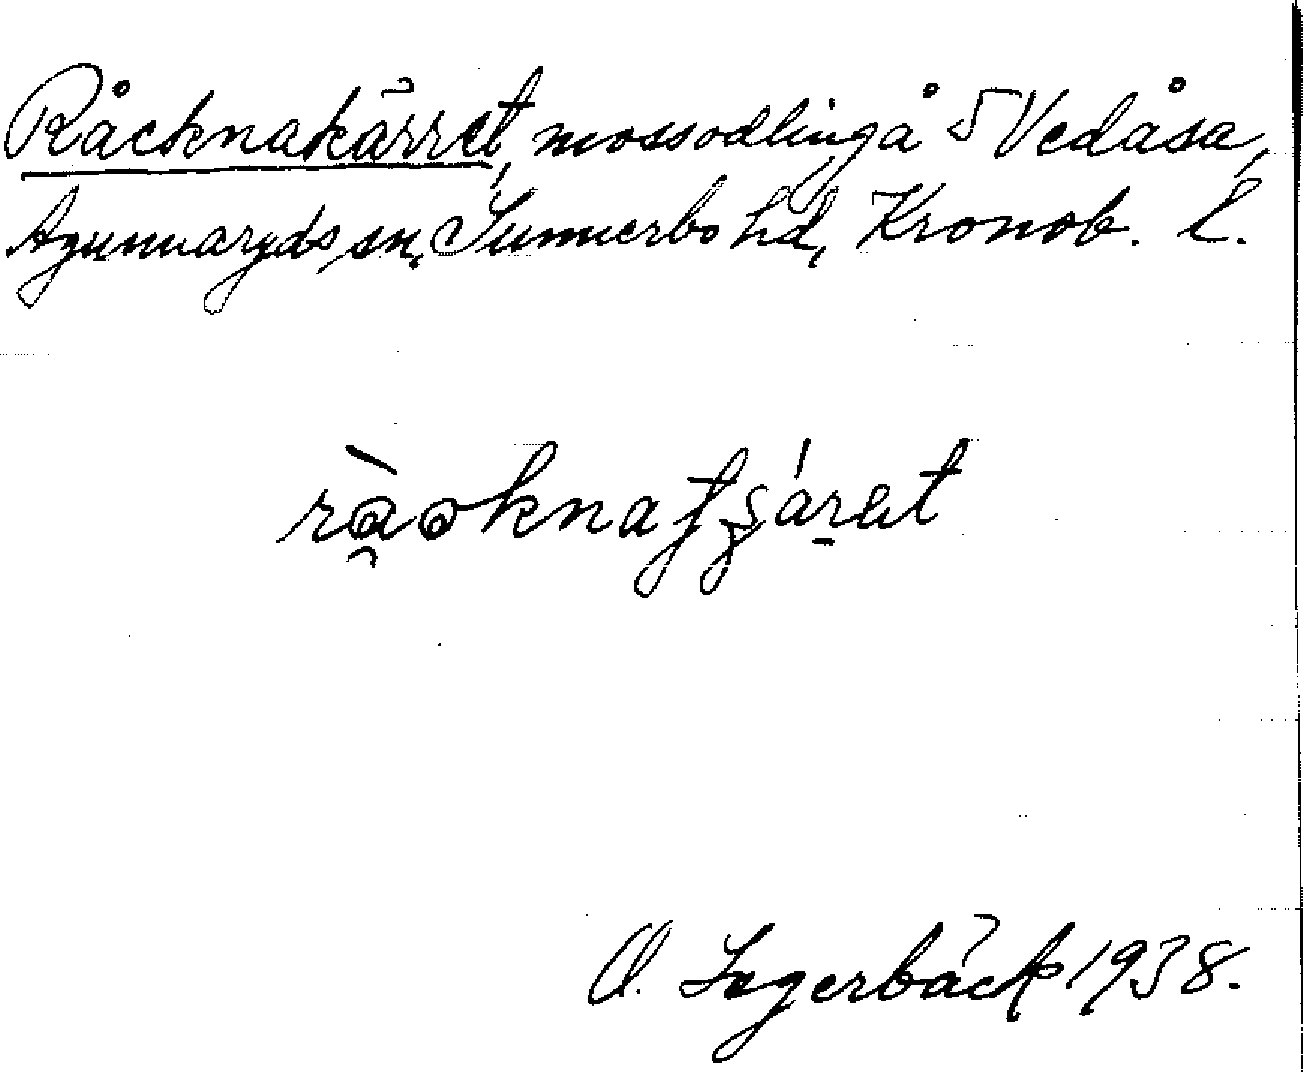 Råcknakärret, mossodling å 5 Vedåsa,
Agunnaryds sn, Sunnerbo hd, Kronob. l.
O. Lagerbäck 1938.